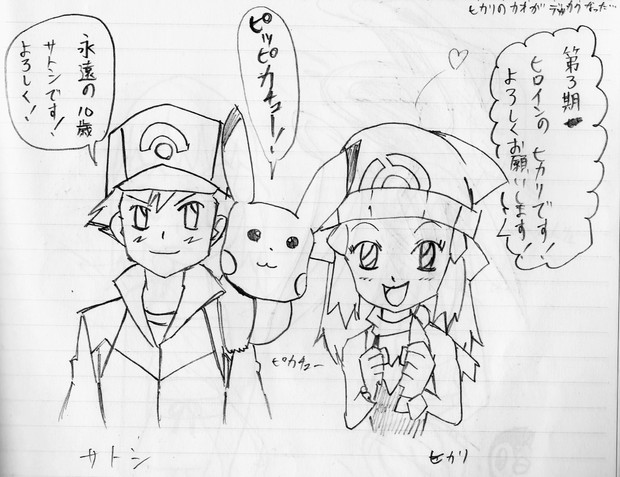 ヒカリのカオがデッカクなった…
永遠の10歳
サトシです！
よろしく！
ピッピカチュー！
第3期
ヒロインのヒカリです！
よろしくお願いします！
ピカチュー
サトシ
ヒカリ